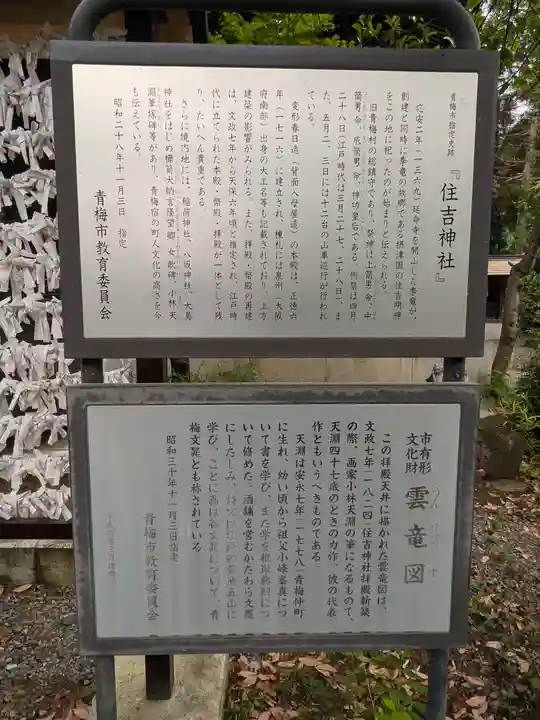 青梅市指定史跡
『住吉神社』
応安二年(一三六九)延命寺を開山した季竜が、
創建と同時に季竜の故郷である摂津国の住吉明神
をこの地に祀ったのが始まりと伝えられる。
旧青梅村の総鎮守であり、祭神は上筒男命、中
筒男命、底筒男命、神功皇后である。例祭は四月
二十八日(江戸時代は三月二十七、二十八日)、ま
た、五月二、三日には十二台の山車巡行が行われ
ている。
変形春日造(背面入母屋造)の本殿は、正徳六
年(一七一六)に建立され、棟札には泉州(大阪
府南部)出身の大工名等も記載されており、上方
建築の影響がみられる。また、拝殿・幣殿の再建
は、文政七年から天保六年頃と推定され、江戸時
代に立てられた本殿・幣殿・拝殿が一体として残
り、たいへん貴重である。
さらに境内地には、稲荷神社、八坂神社、大鳥
神社をはじめ櫛笥大納言隆望卿女歌碑、小林天
淵筆塚碑等があり、青梅宿の町人文化の高さを今
も伝えている。
昭和二十八年十一月三日 指定
青梅市教育委員会
市有形
文化財
雲竜図
うんりゅうず
この拝殿天井に描かれた雲竜図は、
文政七年(一八二四)住吉神社拝殿新築
の際、画家小林天淵の筆になるもので、
天淵四十七歳のときの力作、彼の代表
作ともいうべきものである。
天淵は安永七年(一七七八)青梅仲町
に生れ、幼い頃から祖父小峰峯真につ
いて書を学び、また学を根岸典則につ
いて修めた。酒舗を営むかたわら文墨
にしたしみ、江戸の菊池五山に
学び、ことに画は谷文晁について、青
梅文晁とも称されている
昭和三十年十一月三日指定
青梅市教育委員会